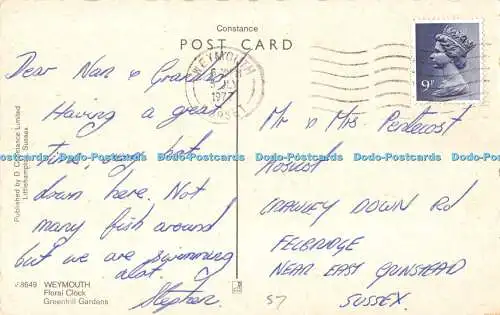 Constance
POST CARD
WEYMOUTH
1977
DORSET
9P
Dear Nan & Grandan
Having a great
time, very hot
down here. Not
many fish around
but we are swimming
alot.
Stephen.
Mr & Mrs Pentecost
CRAWLEY DOWN Rd
FELBRIDGE
NEAR EAST GRINSTEAD
SUSSEX.
57
Published by D. Constance Limited
Littlehampton, Sussex
8649 WEYMOUTH
Floral Clock
Greenhill Gardens
Dodo-Postcards Dodo-Postcards Dodo-Postcards Dodo-Postcards Dodo-Postcards Dodo-Postcards